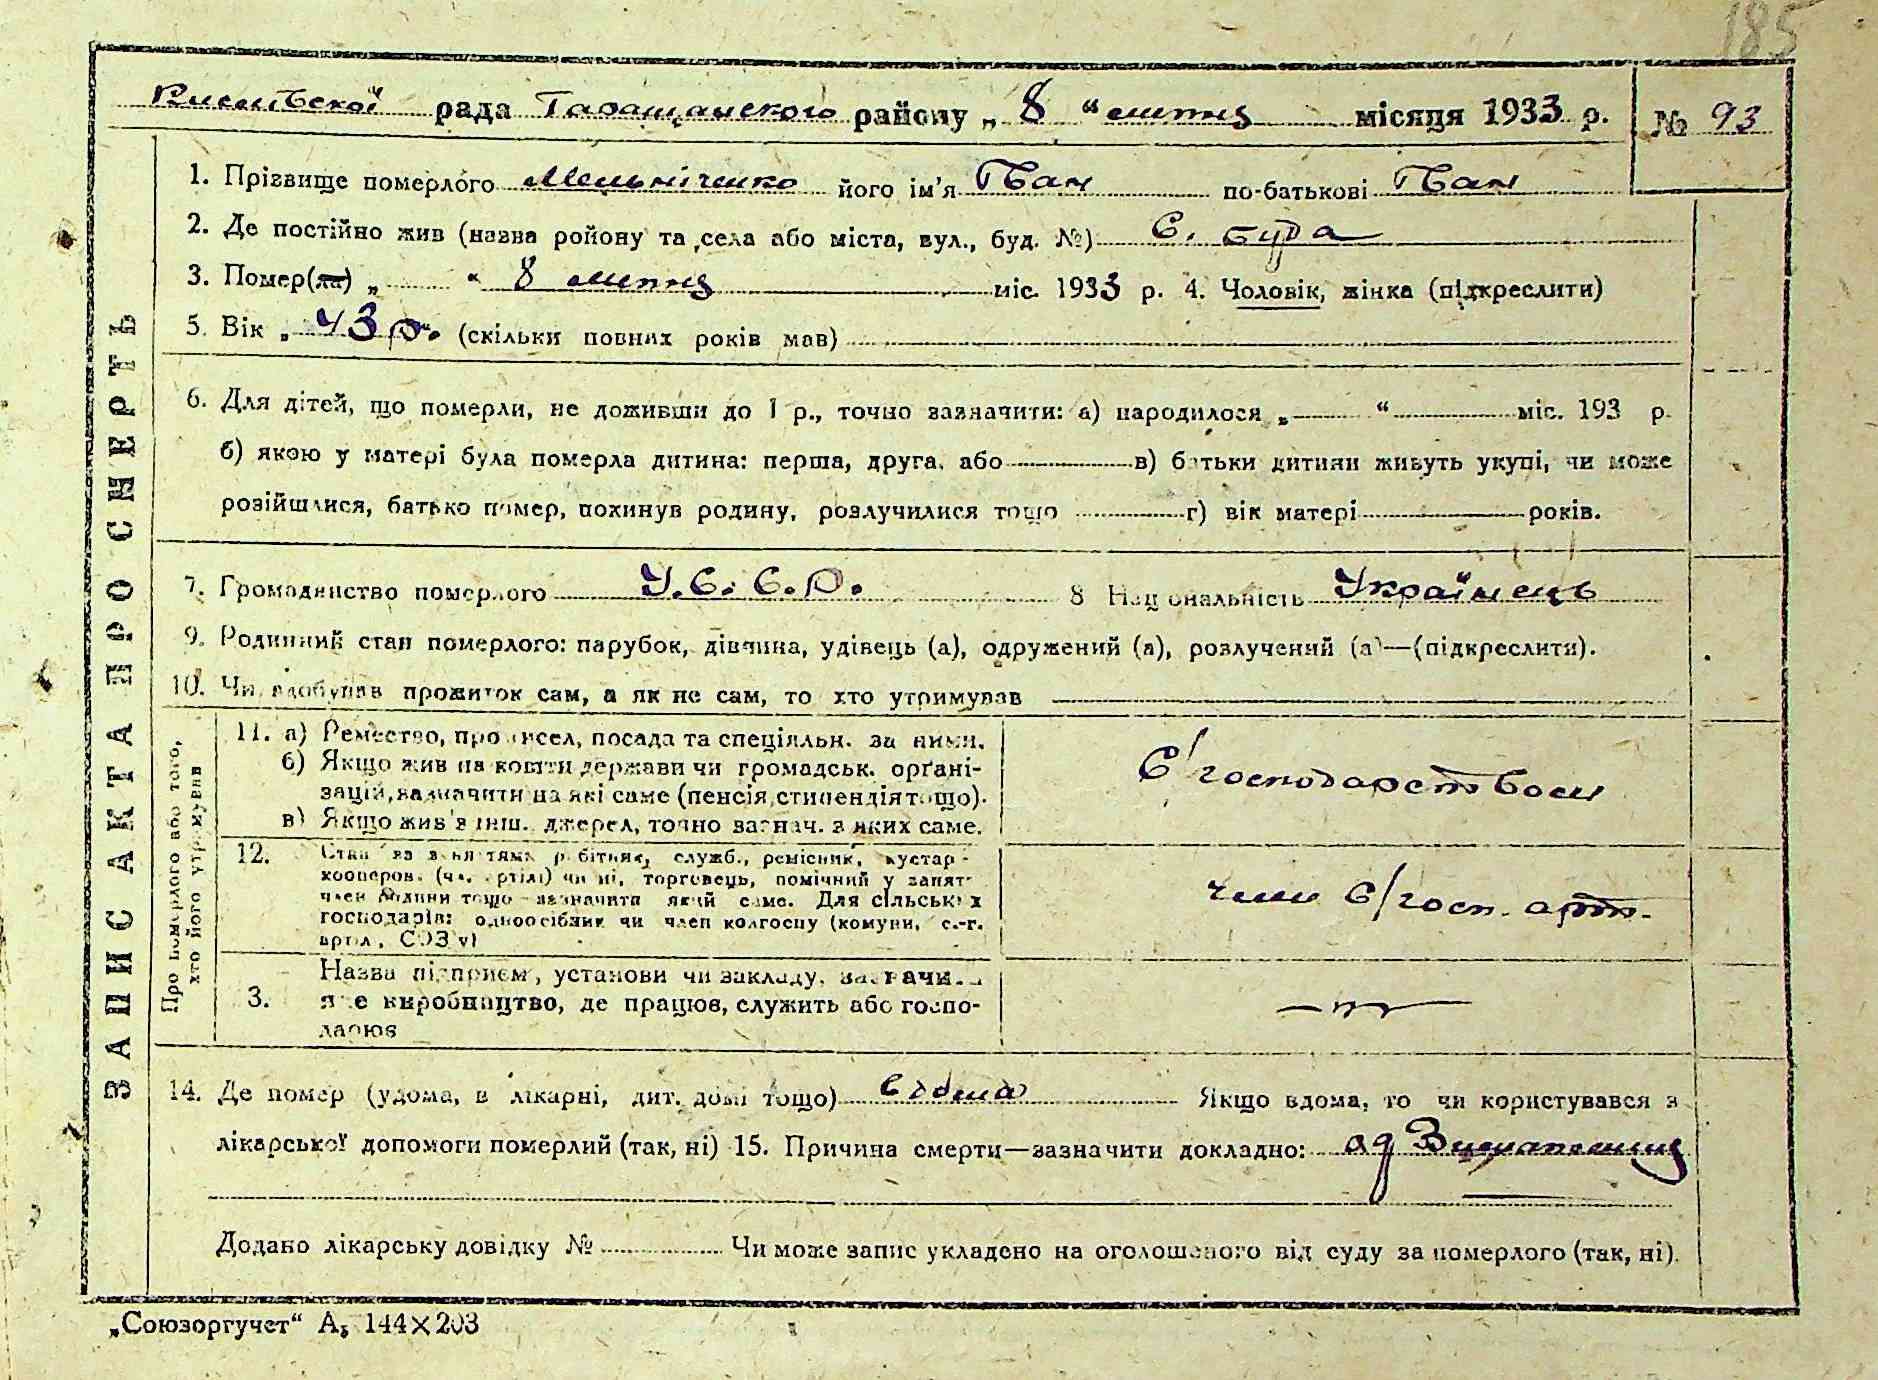 185
рада Таращанского району „ 8 “ липня місяця 1933 р. № 93
1. Прізвище померлого Мельниченко його ім'я Іван по-батькові Іван
2. Де постійно жив (назва ройону та села або міста, вул., буд. №) С. Буда
3. Помер(ла) „ “ 8 липня міс. 1933 р. 4. Чоловік, жінка (підкреслити)
5. Вік „ 43 р. (скільки повних років мав)
6. Для дітей, що померли, не доживши до 1 р., точно зазначити: а) народилося „ “ міс. 193 р.
б) якою у матері була померла дитина: перша, друга, або в) батьки дитини живуть укупі, чи може
розійшлися, батько помер, покинув родину, розлучилися тощо г) вік матері років.
7. Громадянство померлого У.С.С.Р. 8 Національність Українець
9. Родинний стан померлого: парубок, дівчина, удівець (а), одружений (а), розлучений (а)—(підкреслити).
10. Чи здобував прожиток сам, а як не сам, то хто утримував
ЗАПИС АКТА ПРО СМЕРТЬ
Про померлого або того,
хто його утримував
11. а) Ремество, промисел, посада та спеціяльн. за ними.
б) Якщо жив на кошти держави чи громадськ. орґані-
зацій, зазначити на які саме (пенсія, стипендія тощо).
в) Якщо жив з інш. джерел, точно зазнач. з яких саме.
С/господарством
12. Стан за заняттям: робітник, служб., ремісник, кустар -
кооперов. (чл. артілі) чи ні, торговець, помічний у занят-
член родини тощо - зазначити який саме. Для сільських
господарів: одноосібник чи член колгоспу (комуни, с.-г.
артіл., СОЗ'у)
член С/госп. арт.
3. Назва підприєм., установи чи закладу, зазначи..
яке виробництво, де працює, служить або госпо-
дарює
—"—
14. Де помер (удома, в лікарні, дит. домі тощо) вдома Якщо вдома, то чи користувався з
лікарської допомоги померлий (так, ні) 15. Причина смерти—зазначити докладно: од
Додано лікарську довідку № Чи може запис укладено на оголошеного від суду за померлого (так, ні).
„Союзоргучет“ А₅ 144×203